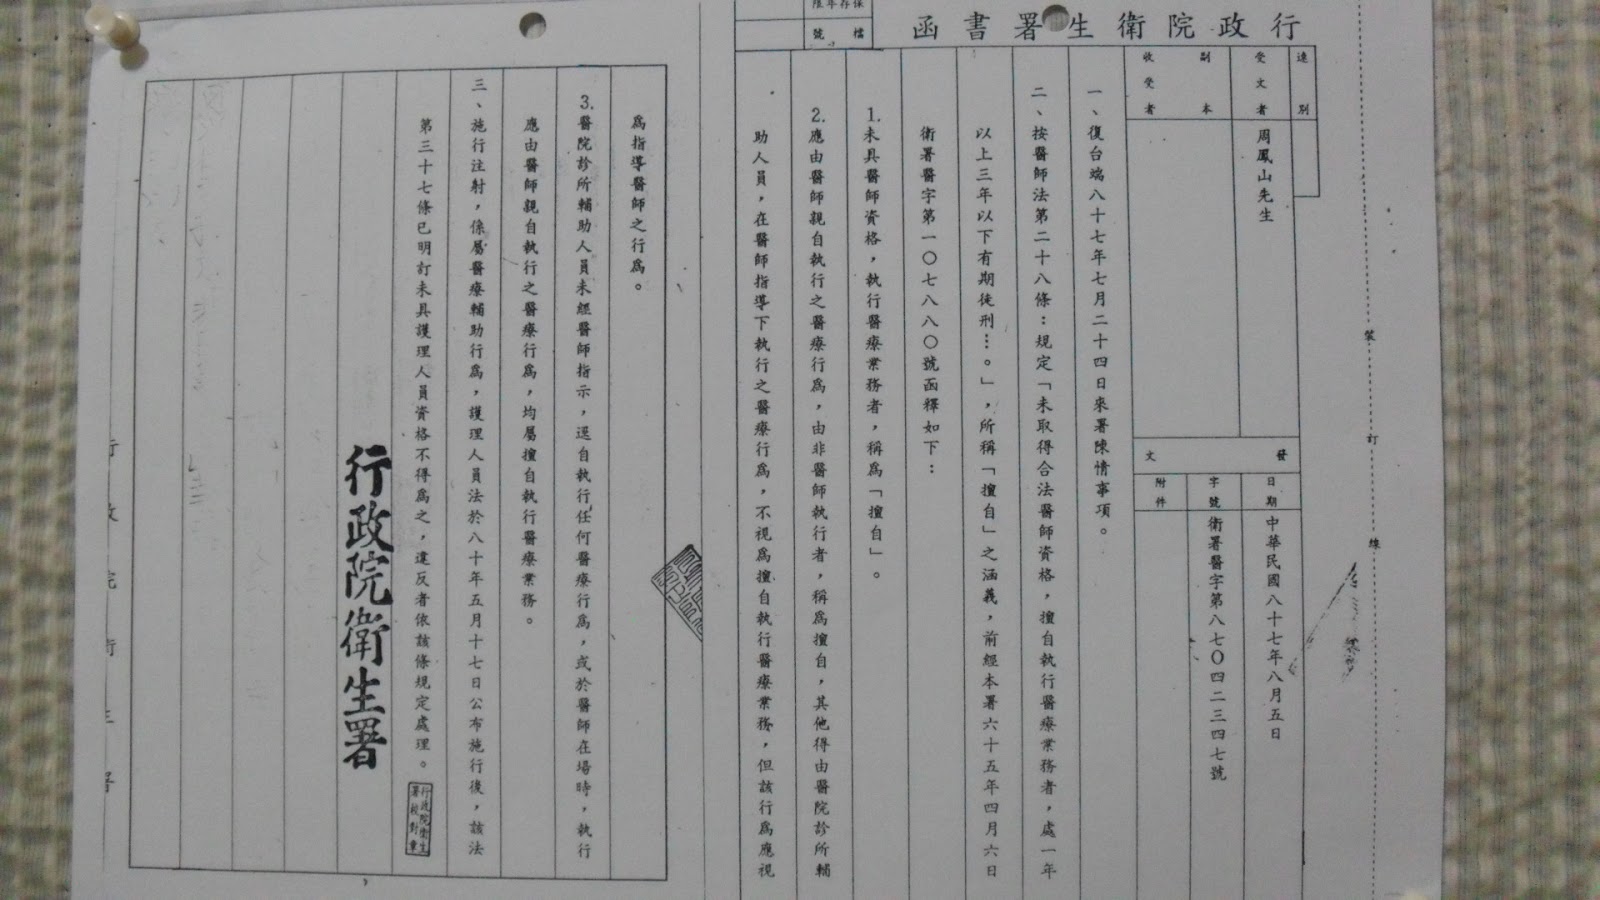 行政院衛生署書函
檔號
保存年限
速別
受文者
周鳳山先生
副本收受者
發文
日期
中華民國八十七年八月五日
字號
衛署醫字第八七〇四二三四七號
附件
一、復台端八十七年七月二十四日來署陳情事項。
二、按醫師法第二十八條：規定「未取得合法醫師資格，擅自執行醫療業務者，處一年
以上三年以下有期徒刑…。」，所稱「擅自」之涵義，前經本署六十五年四月六日
衛署醫字第一〇七八八〇號函釋如下：
1.未具醫師資格，執行醫療業務者，稱爲「擅自」。
2.應由醫師親自執行之醫療行爲，由非醫師執行者，稱爲擅自，其他得由醫院診所輔
助人員，在醫師指導下執行之醫療行爲，不視爲擅自執行醫療業務，但該行爲應視
爲指導醫師之行爲。
3.醫院診所輔助人員未經醫師指示，逕自執行任何醫療行爲，或於醫師在場時，執行
應由醫師親自執行之醫療行爲，均屬擅自執行醫療業務。
三、施行注射，係屬醫療輔助行爲，護理人員法於八十年五月十七日公布施行後，該法
第三十七條已明訂未具護理人員資格不得爲之，違反者依該條規定處理。
行政院衛生署校對章
行政院衛生署
裝訂線
行政院衛生署